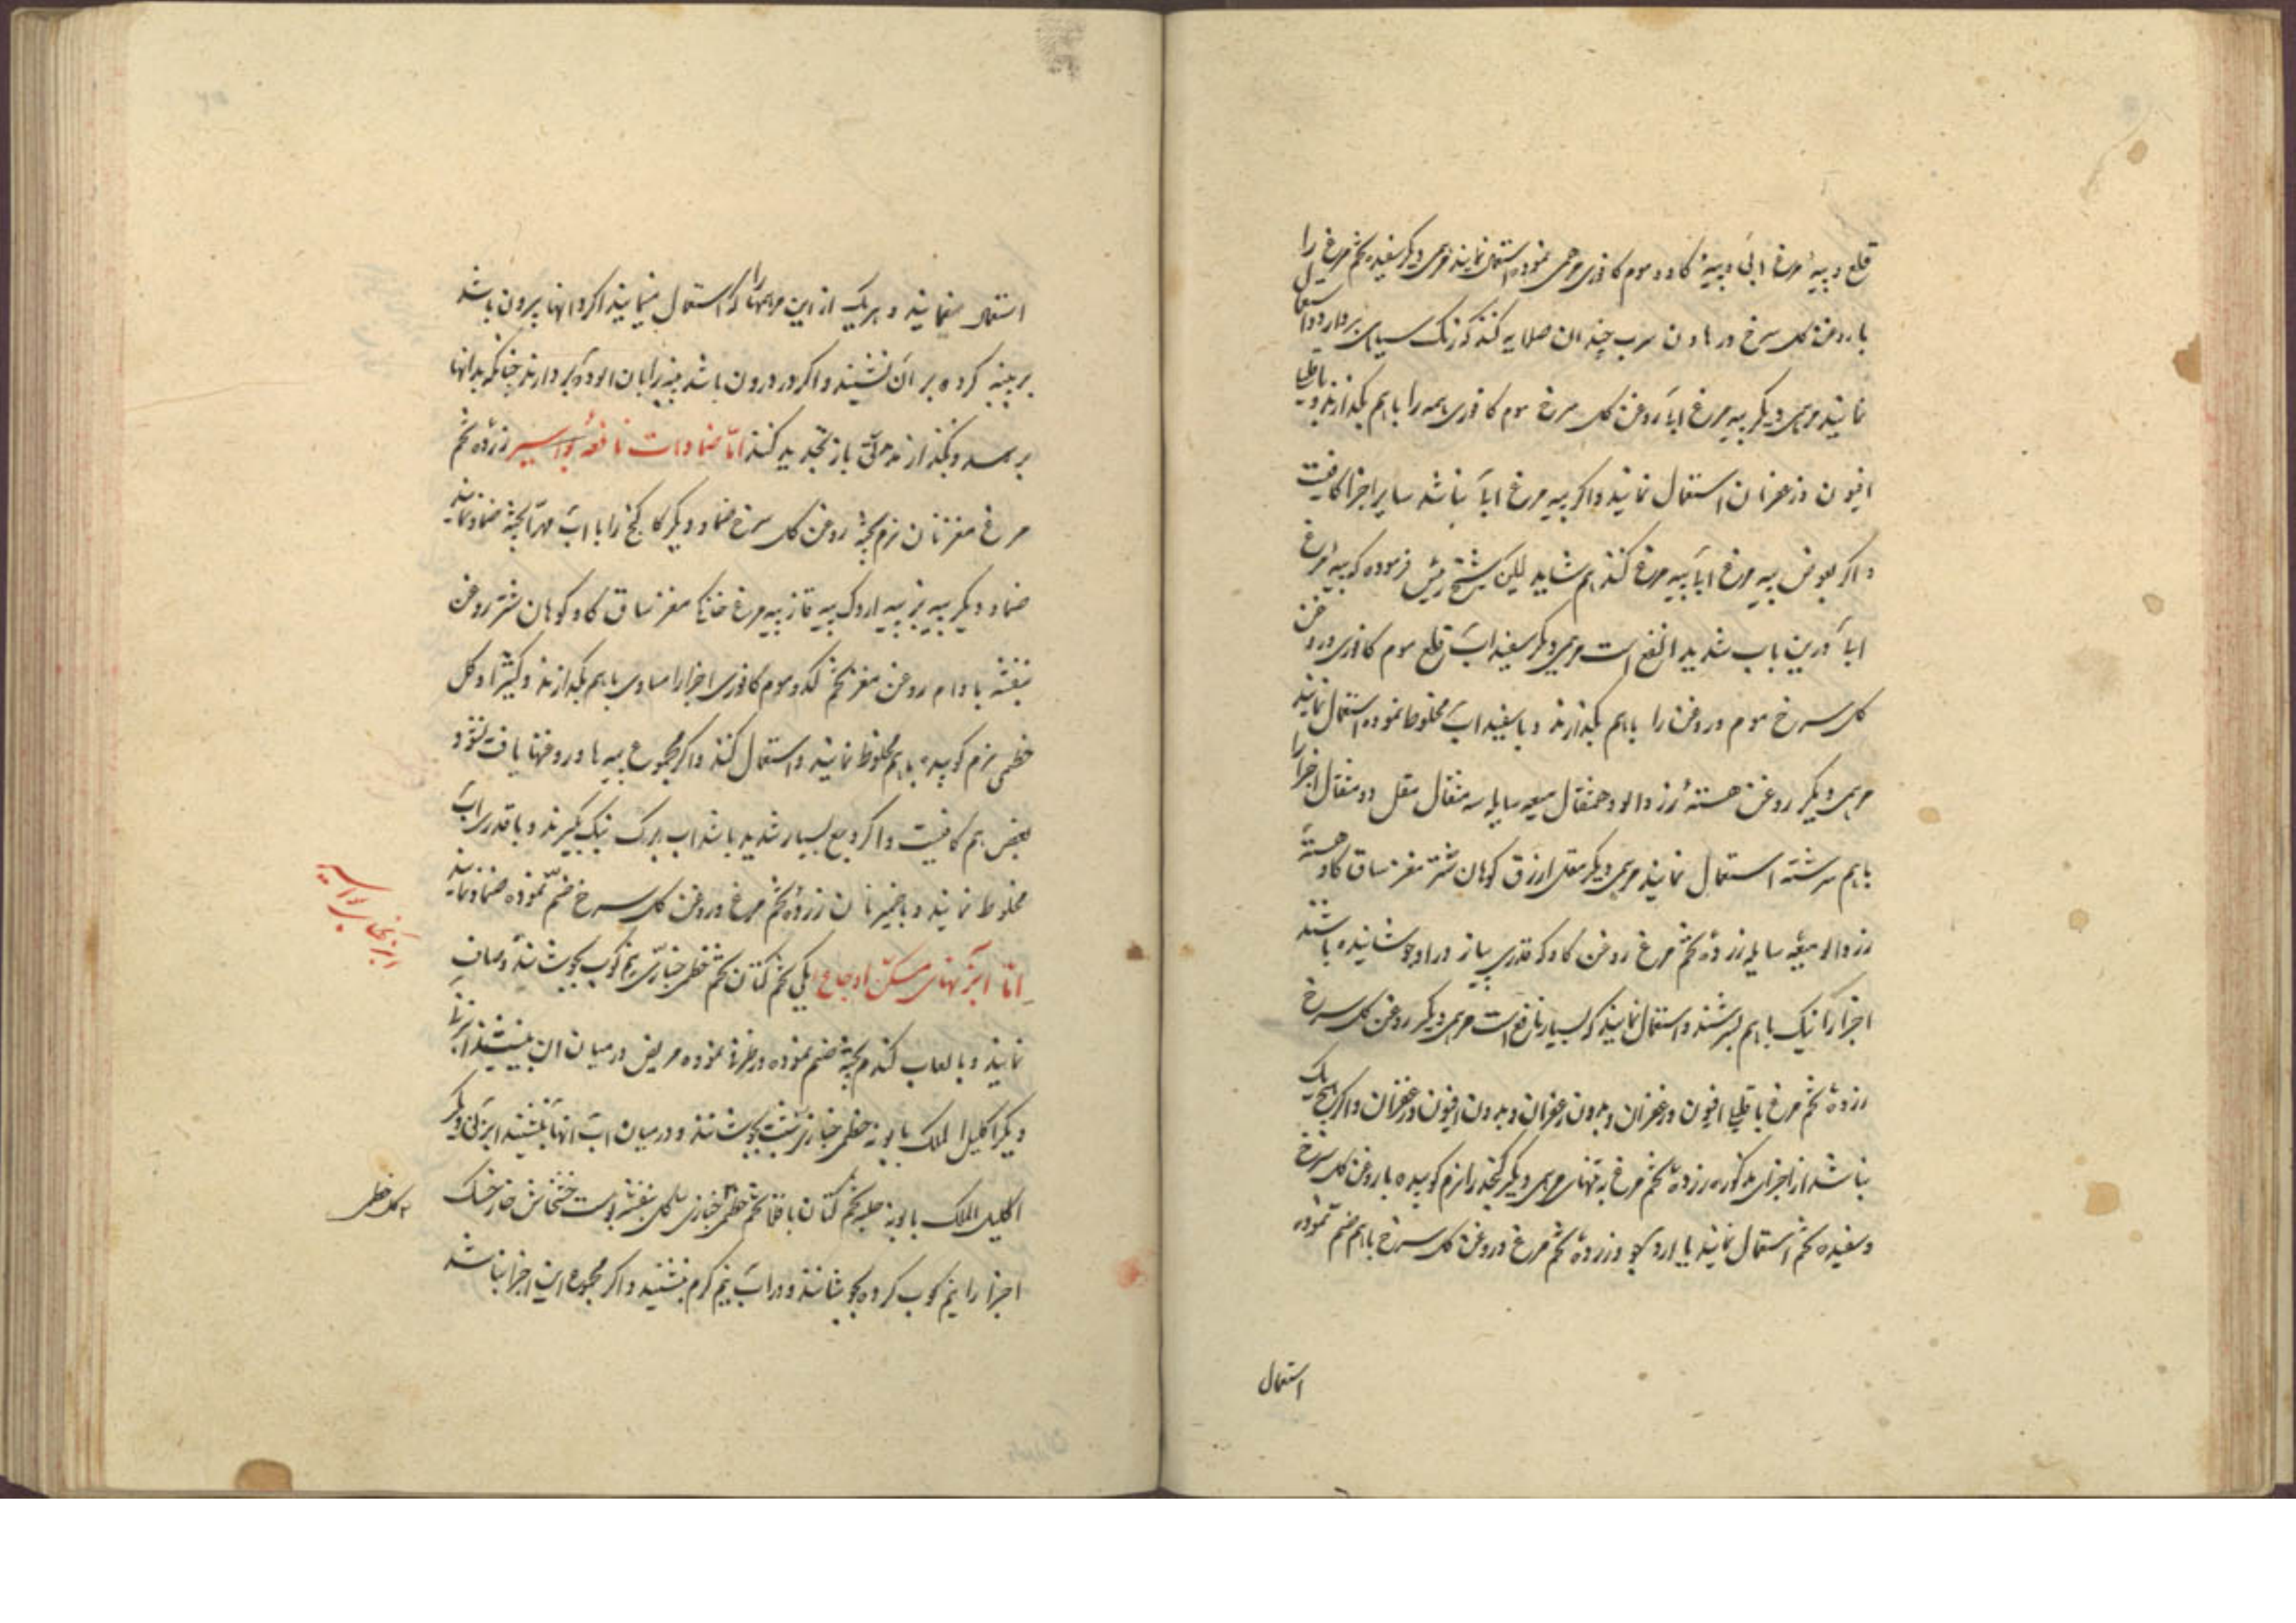 قلع و پیه مرغ ابی و پیه کاو و موم کافوری مرهمی نموده استعمال نمایند مرهمی دیکر سفیده تخم مرغ را
با روغن کل سرخ در هاون سرب چندان صلایه کنند که رنک سیاهی بردارد و استعمال
نمایند مرهمی دیکر پیه مرغ ابی روغن کل سرخ موم کافوری همه را باهم بکدازند و باقلیا
افیون و زعفران استعمال نمایند و اکر پیه مرغ ابی نباشد سایر اجزا کافیست
و اکر بعوض پیه مرغ ابی پیه مرغ کنند هم شاید لیکن شیخ رئیس فرموده که پیه مرغ
ابی درین باب شدید النفع است مرهمی دیکر سفیداب قلع موم کافوری و روغن
کل سرخ موم و روغن را باهم بکدازند و با سفیداب مخلوط نموده استعمال نمایند
مرهمی دیکر روغن هسته زردالو ده مثقال میعه سایله سه مثقال مقل دو مثقال اجزا را
باهم سرشته استعمال نمایند مرهمی دیکر مقل ازرق کوهان شتر مغز ساق کاو هسته
زردالو میعه سایله زرده تخم مرغ روغن کاو که قدری پیاز در او جوشانیده باشند
اجزا را نیک باهم بسرشند و استعمال نمایند که بسیار نافع است مرهمی دیکر روغن کل سرخ
زرده تخم مرغ باقلیا افیون و زعفران و بدون زعفران و بدون افیون و زعفران و اکر هیچ یک
نباشد از اجزای مذکوره زرده تخم مرغ به تنهایی مرهمی دیکر کنجد را نرم کوبیده با روغن کل سرخ
و سفیده تخم استعمال نمایند یا ارد جو و زرده تخم مرغ و روغن کل سرخ باهم ضم نموده
استعمال
استعمال مینمایند و هر یک از این مرهمها را که استعمال مینمایند اکر دانها بیرون باشد
بر پنبه کرده بر ان نشینند و اکر در درون باشد پنبه را بان الوده بردارند چنانکه بدانها
برسد و بکذارند مدتی باز تجدید کنند اما ضمادات نافعه بواسیر زرده تخم
مرغ مغز نان نرم پخته روغن کل سرخ ضماد دیکر کاکنج را با اب مهرا پخته ضماد نمایند
ضماد دیکر پیه بز پیه اردک پیه قاز پیه مرغ خانکی مغز ساق کاو کوهان شتر روغن
بنفشه بادام روغن مغز تخم کدو موم کافوری اجزا را مساوی باهم بکدازند و کثیرا و کل
خطمی نرم کوبیده باهم مخلوط نمایند و استعمال کنند و اکر مجموع پیه ها و روغنها یافت نشود
بعض هم کافیست و اکر وجع بسیار شدید باشد اب برک بنک بکیرند و با قدری اب
مخلوط نمایند و با خمیر نان زرده تخم مرغ و روغن کل سرخ ضم نموده ضماد نمایند
اما ابزنهای مسکن اوجاع یکی تخم کتان تخم خطمی خبازی نیم کوب بجوشانند و صاف
نمایند و با لعاب کندم پخته ضم نموده در ظرف نموده مریض در میان ان بنشیند ابزنی
دیکر اکلیل الملک بابونه خطمی خبازی شبت بجوشانند و در میان اب انها بنشیند ابزنی دیکر
اکلیل الملک بابونه حلبه تخم کتان باقلا تخم خطمی خبازی کل بنفشه پوست خشخاش خار خسک
اجزا را نیم کوب کرده بجوشانند و در اب نیم کرم بنشیند و اکر مجموع این اجزا نباشد
کل خطمی